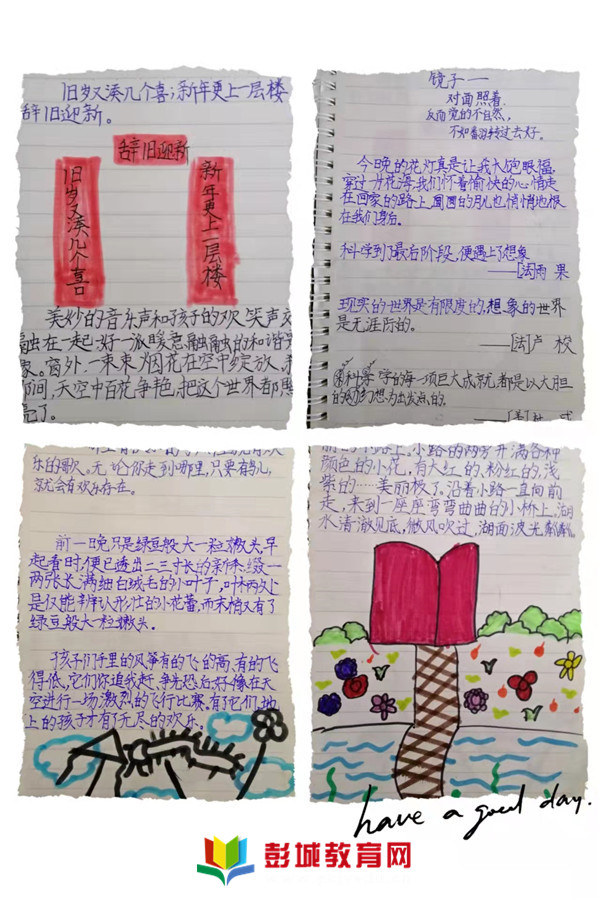 旧岁又凑几个喜,新年更上一层楼
辞旧迎新。
辞旧迎新
旧岁又凑几个喜
新年更上一层楼
美妙的音乐声和孩子的欢笑声交
融在一起,好一派暖意融融的和谐
象。窗外,一束束烟花在空中绽放,刹
那间,天空中百花争艳,把这个世界都照
亮了。
镜子一
对面照着,
反而觉的不自然,
不如翻转过去好。
今晚的花灯真是让我大饱眼福,
穿过灯花海,我们怀着愉快的心情走
在回家的路上,圆圆的月儿也悄悄地跟
在我们身后。
科学到了最后阶段,便遇上了想象
——[法]雨果
现实的世界是有限度的,想象的世界
是无涯际的。
——[法]卢梭
科学的每一项巨大成就,都是以大胆
的幻想为出发点的。
乐的歌。无论你走到哪里,只要有鹅儿,
就会有欢乐存在。
前一晚只是绿豆般大一粒嫩头,早
起看时,便已透出二三寸长的新条,缀一
两张长满细白绒毛的小叶子,叶柄处
是仅能辨认形状的小花蕾,而末梢又有了
绿豆般大一粒嫩头。
孩子们手里的风筝有的飞的高,有的飞
得低,它们你追我赶,争先恐后,好像在天
空进行一场激烈的飞行比赛,有了它们,地
上的孩子才有了无尽的欢乐。
小路上,小路的两旁开满各种
颜色的小花,有大红的、粉红的,浅
紫的……美丽极了。沿着小路一直向前
走,来到一座座弯弯曲曲的小桥上,湖
水清澈见底,微风吹过,湖面波光粼粼。
have a good day.
彭城教育网